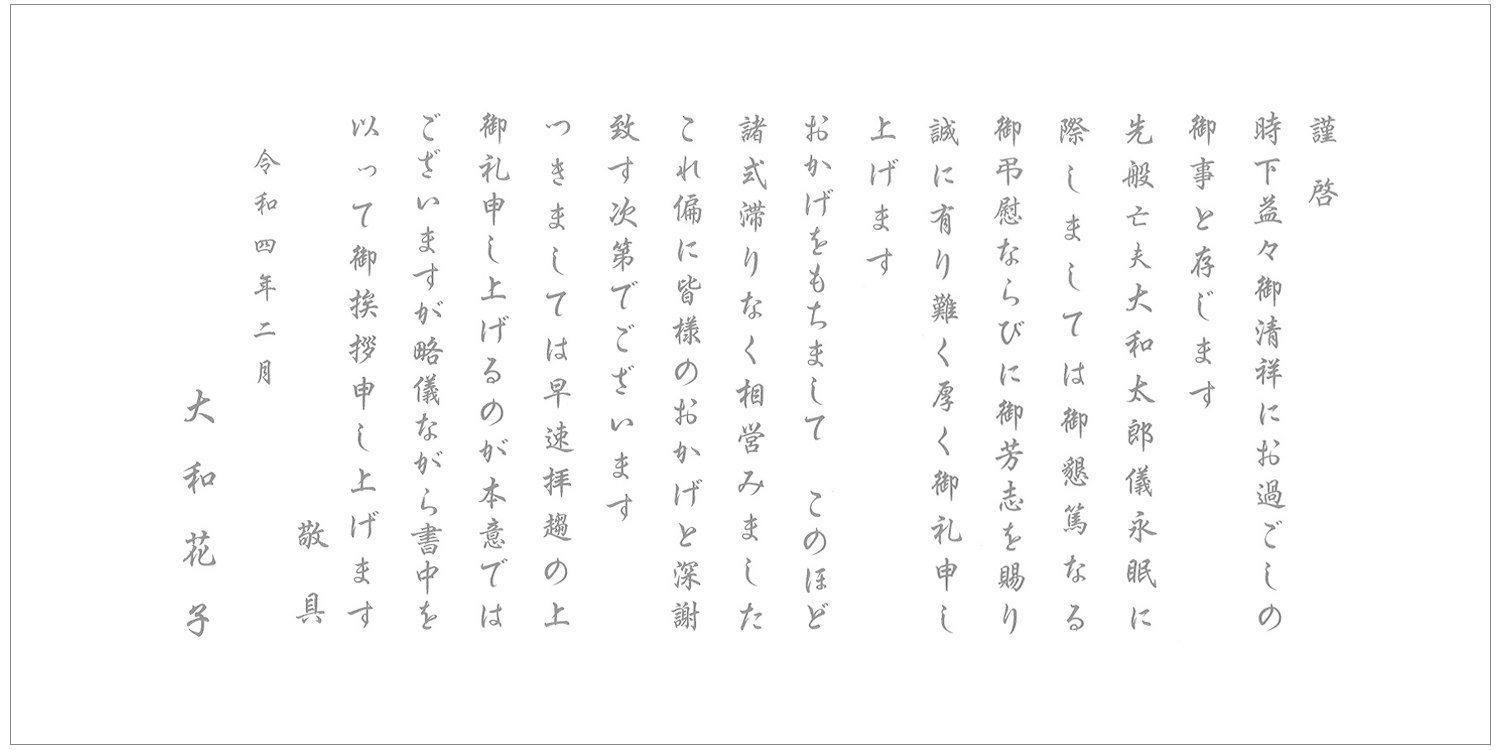 謹啓
時下益々御清祥にお過ごしの
御事と存じます
先般亡夫大和太郎儀永眠に
際しましては御懇篤なる
御弔慰ならびに御芳志を賜り
誠に有り難く厚く御礼申し
上げます
おかげをもちまして　このほど
諸式滞りなく相営みました
これ偏に皆様のおかげと深謝
致す次第でございます
つきましては早速拝趨の上
御礼申し上げるのが本意では
ございますが略儀ながら書中を
以って御挨拶申し上げます
敬具
令和四年二月
大和花子